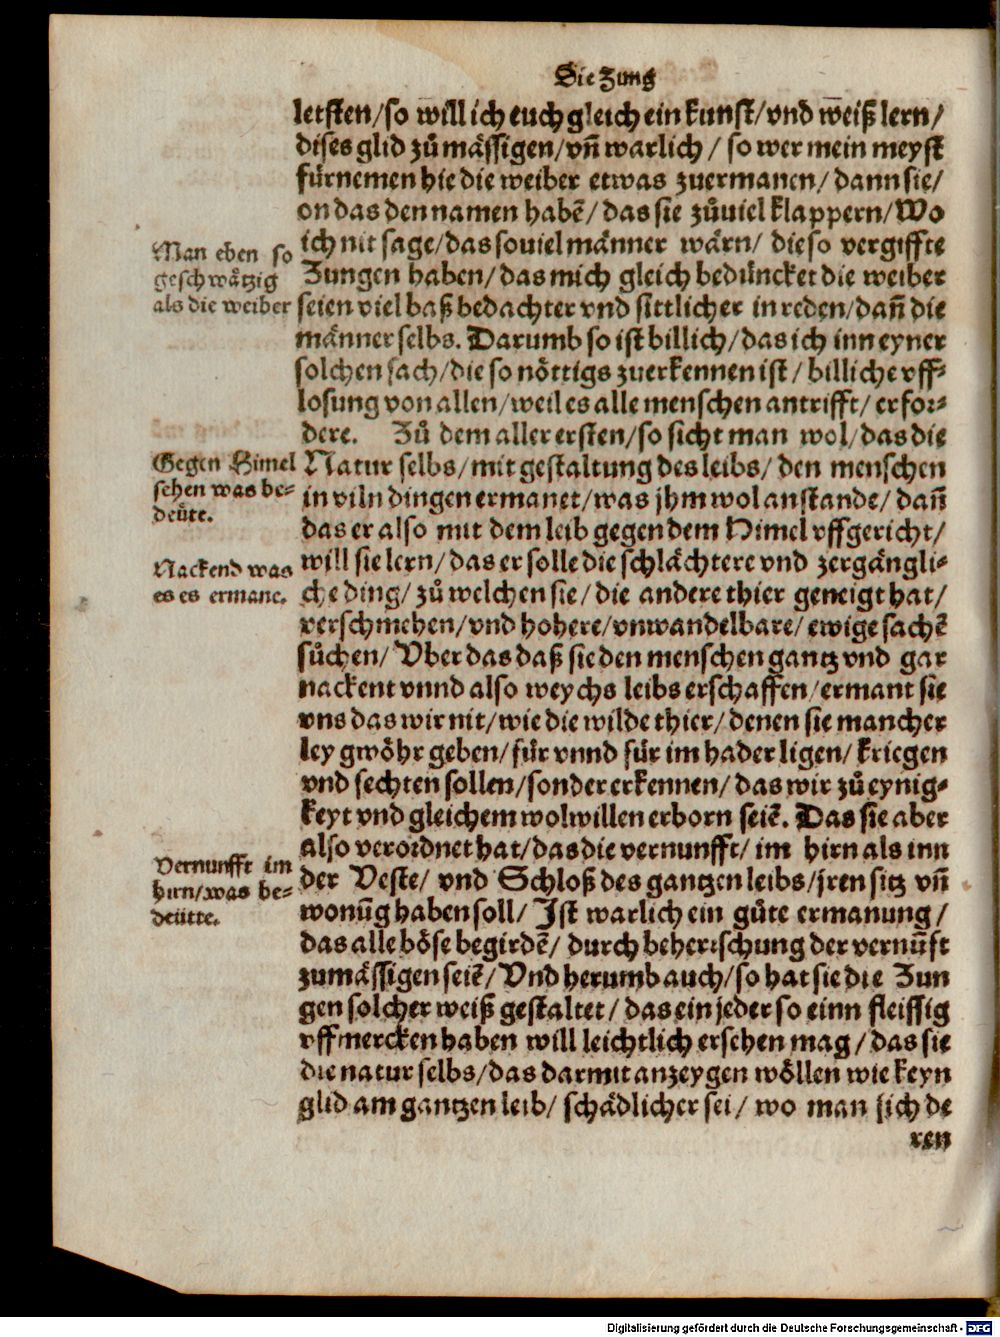 Die Zung
letsten/so will ich euch gleich ein kunst/vnd weiß lern/
dises glid zů mässigen/vñ warlich / so wer mein meyst
fürnemen hie die weiber etwas zuermanen/ dann sie/
on das den namen habē/ das sie zůuiel klappern/Wo
ich nit sage/das souiel männer wärn/ die so vergiffte
Man eben so
geschwätzig
als die weiber
Zungen haben/das mich gleich beduncket die weiber
seien viel baß bedachter vnd sittlicher in reden/dañ die
männer selbs. Darumb so ist billich/das ich inn eyner
solchen sach/die so nöttigs zuerkennen ist / billiche vff⸗
losung von allen/weil es alle menschen antrifft/ erfor⸗
dere. Zů dem aller ersten/so sicht man wol/das die
Gegen Himel
sehen was be⸗
deüte.
Natur selbs/mit gestaltung des leibs/ den menschen
in viln dingen ermanet/was jhm wol anstande/ dañ
das er also mit dem leib gegen dem Himel vffgericht/
Nackend was
es es ermane.
will sie lern/das er solle die schlächtere vnd zergängli⸗
che ding/ zů welchen sie/ die andere thier geneigt hat/
verschmehen/vnd hohere/vnwandelbare/ ewige sachē
sůchen/ Vber das daß sie den menschen gantz vnd gar
nackent vnnd also weychs leibs erschaffen/ermant sie
vns das wir nit/wie die wilde thier/denen sie mancher
ley gwöhr geben/für vnnd für im hader ligen/kriegen
vnd fechten sollen/sonder erkennen/das wir zů eynig⸗
keyt vnd gleichem wolwillen erborn seiē. Das sie aber
also verordnet hat/das die vernunfft/ im hirn als inn
Vernunfft im
hirn/was be⸗
deütte.
der Veste/ vnd Schloß des gantzen leibs/jren sitz vñ
wonūg haben soll/ Ist warlich ein gůte ermanung/
das alle böse begirdē/ durch beherrschung der vernūft
zumässigen seiē/ Vnd herumb auch/so hat sie die Zun
gen solcher weiß gestaltet/das ein jeder so einn fleissig
vffmercken haben will leichtlich ersehen mag/das sie
die natur selbs/das darmit anzeygen wöllen wie keyn
glid am gantzen leib/ schädlicher sei/ wo man sich de
ren
Digitalisierung gefördert durch die Deutsche Forschungsgemeinschaft - DFG